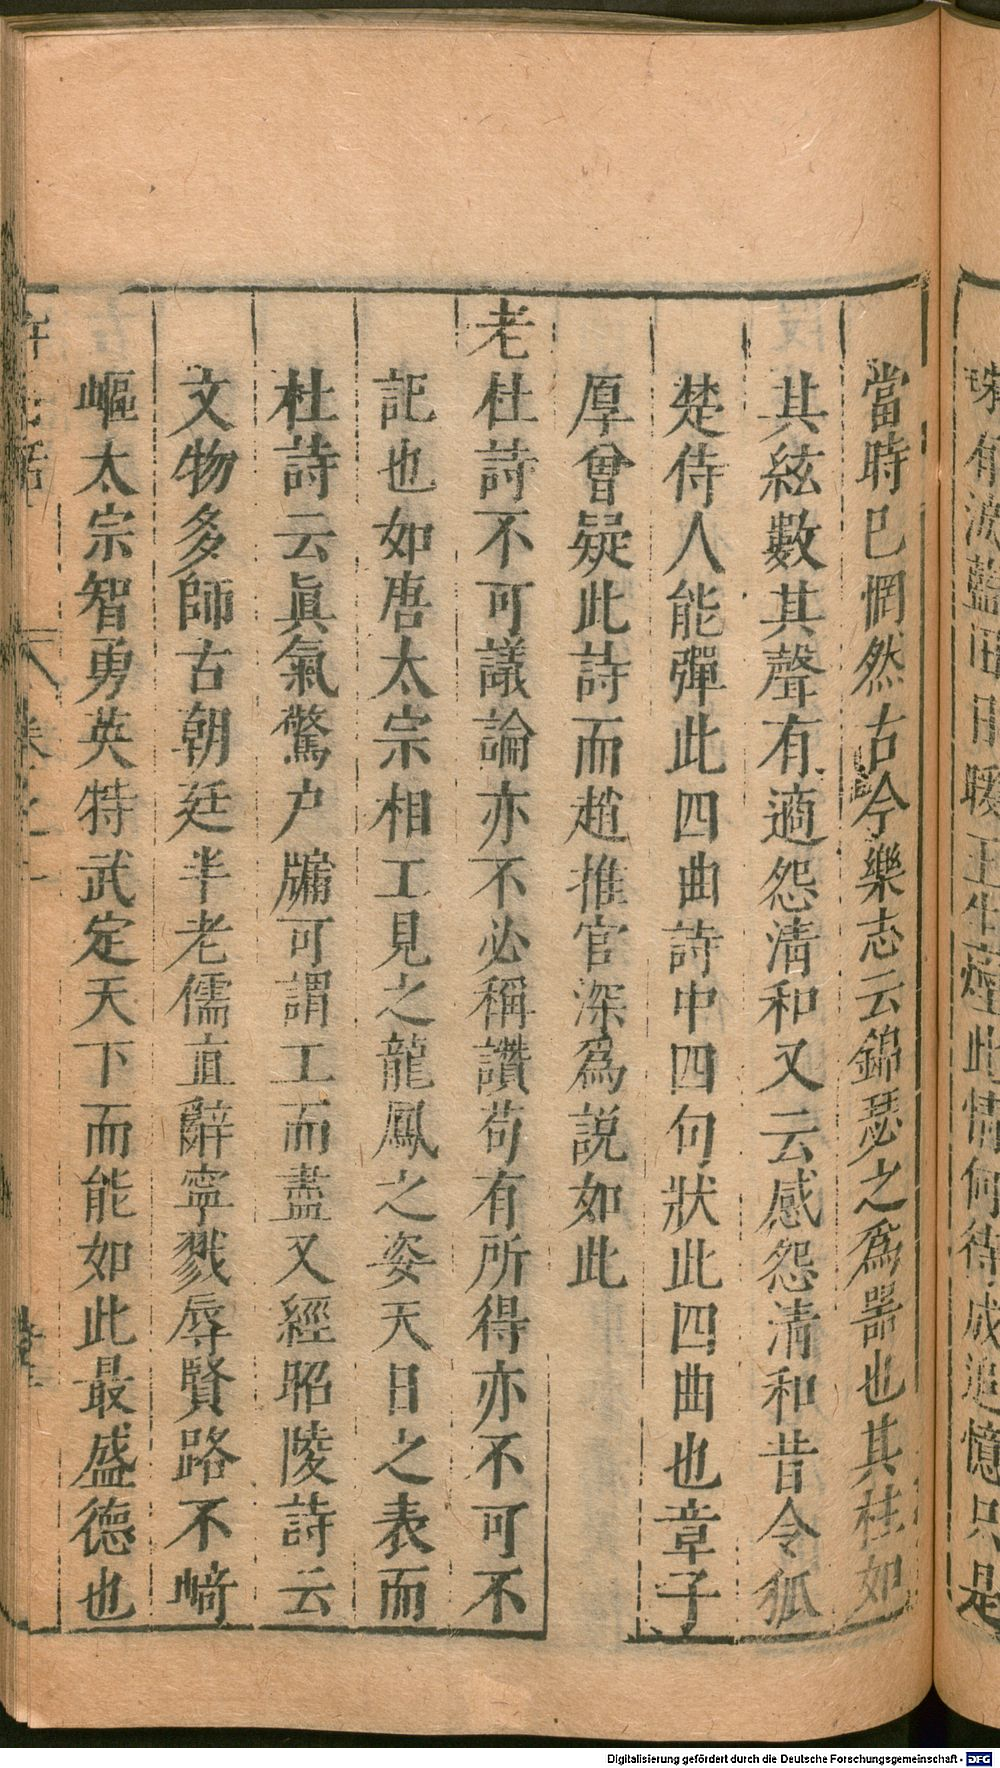 珠有淚藍田日暖玉生煙此情何待成追憶只是
當時已惘然古今樂志云錦瑟之爲噐也其柱如
其絃數其聲有適怨清和又云感怨清和昔令狐
楚侍人能彈此四曲詩中四句狀此四曲也章子
厚曾疑此詩而趙推官深爲説如此
老杜詩不可議論亦不必稱讚苟有所得亦不可不
記也如唐太宗相工見之龍鳳之姿天日之表而
杜詩云眞氣驚户牖可謂工而盡又經昭陵詩云
文物多師古朝廷半老儒直辭寧戮辱賢路不﨑
嶇太宗智勇英特武定天下而能如此最盛德也
Digitalisierung gefördert durch die Deutsche Forschungsgemeinschaft - DFG